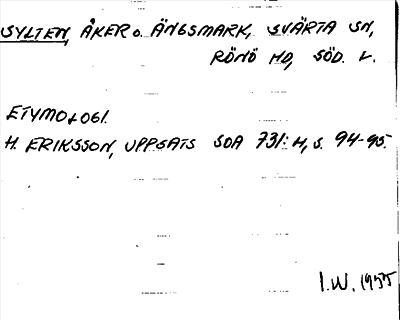 SYLTEN, ÅKER o. ÄNGSMARK, SVÄRTA SN,
RÖNÖ HD, SÖD. L.
ETYMOLOGI.
H. ERIKSSON, UPPSATS SOA 731: H, S. 94-95.
I.W. 1955